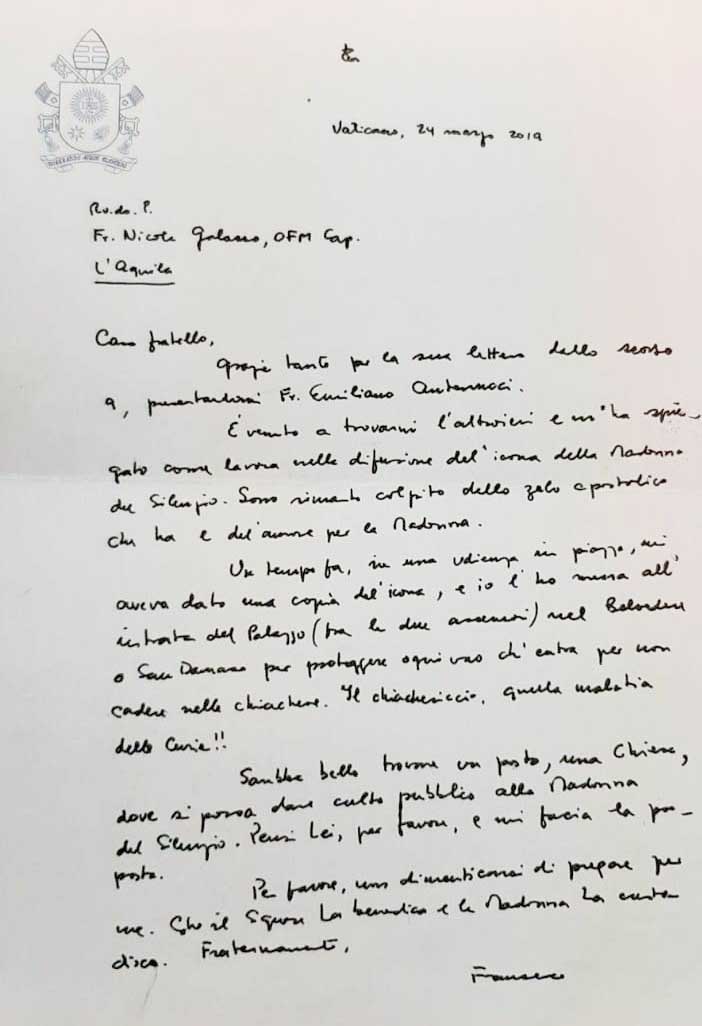 MISERANDO ATQUE ELIGENDO
Vaticano, 24 marzo 2019
Rv.do. P.
Fr. Nicola Galasso, OFM Cap.
L'Aquila
Caro fratello,
grazie tante per la sua lettera dello scorso
9, presentandomi Fr. Emiliano Antenucci.
È venuto a trovarmi l'altroieri e m'ha spie-
gato come lavora nella difusione del'icona della Madonna
del Silenzio. Sono rimasto colpito dello zelo apostolico
che ha e del'amore per la Madonna.
Un tempo fa, in una udienza in piazza, mi
aveva dato una copia del'icona, e io l'ho messa all'
intrata del Palazzo (tra le due ascensori) nel Belvedere
o San Damaso per proteggere ogni uno ch'entra per non
cadere nelle chiachere. Il chiachericcio, quella malatia
della Curia!!
Sarebbe bello trovare un posto, una Chiesa,
dove si possa dare culto pubblico alla Madonna
del Silenzio. Pensi Lei, per favore, e mi facia la pro-
posta.
Per favore, non dimenticarsi di pregare per
me. Che il Signore La benedica e la Madonna La custo-
disca. Fraternamente,
Francesco